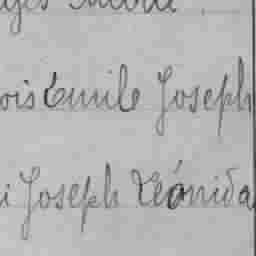 ois Emile Joseph
i Joseph Léonida